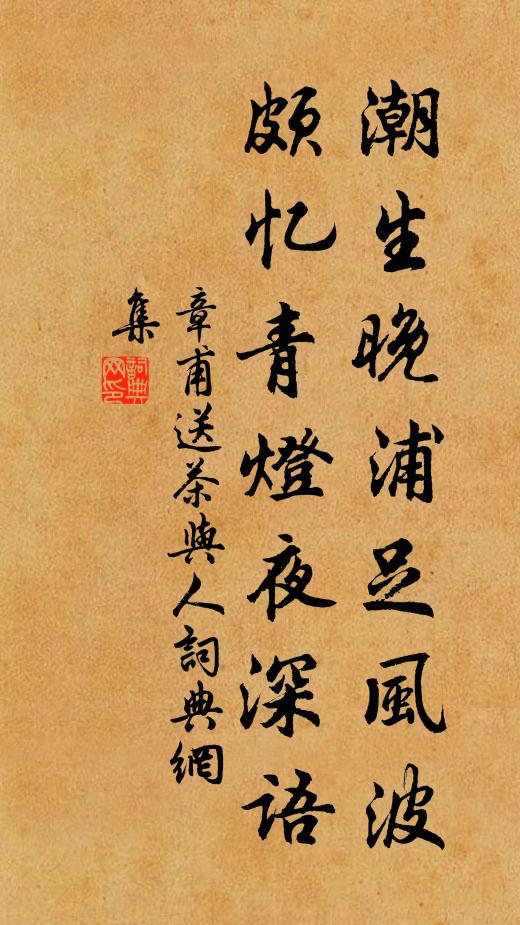 潮生晚浦足风波
颇忆青燈夜深语
章甫送茶與人詞典網
集
詞典網印